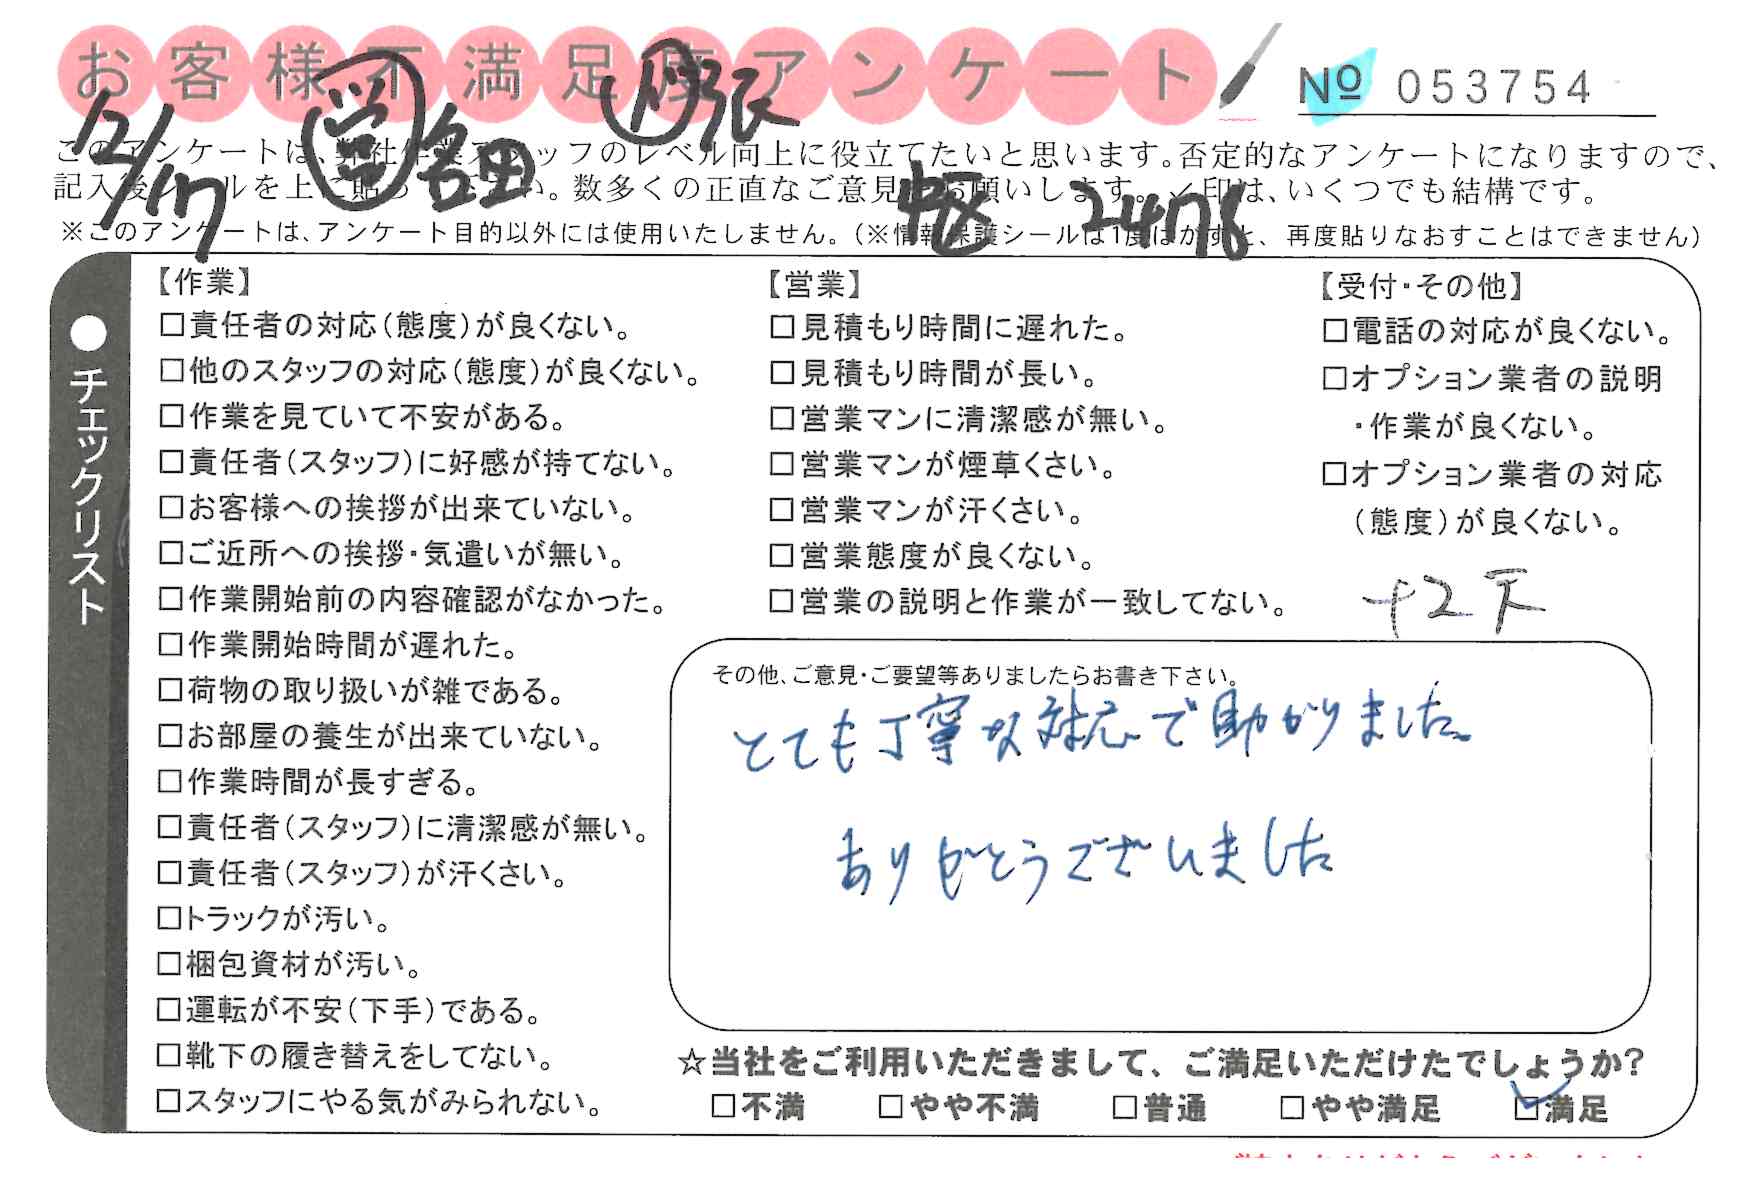 お客様不満足度アンケート
№ 053754
12/17 営 名田 作 張
このアンケートは、弊社作業スタッフのレベル向上に役立てたいと思います。否定的なアンケートになりますので、
記入後シールを上に貼って下さい。数多くの正直なご意見をお願いします。✓印は、いくつでも結構です。
中区 2478
※このアンケートは、アンケート目的以外には使用いたしません。(※情報保護シールは1度はがすと、再度貼りなおすことはできません)
●チェックリスト
【作業】
□責任者の対応(態度)が良くない。
□他のスタッフの対応(態度)が良くない。
□作業を見ていて不安がある。
□責任者(スタッフ)に好感が持てない。
□お客様への挨拶が出来ていない。
□ご近所への挨拶・気遣いが無い。
□作業開始前の内容確認がなかった。
□作業開始時間が遅れた。
□荷物の取り扱いが雑である。
□お部屋の養生が出来ていない。
□作業時間が長すぎる。
□責任者(スタッフ)に清潔感が無い。
□責任者(スタッフ)が汗くさい。
□トラックが汚い。
□梱包資材が汚い。
□運転が不安(下手)である。
□靴下の履き替えをしてない。
□スタッフにやる気がみられない。
【営業】
□見積もり時間に遅れた。
□見積もり時間が長い。
□営業マンに清潔感が無い。
□営業マンが煙草くさい。
□営業マンが汗くさい。
□営業態度が良くない。
□営業の説明と作業が一致してない。
【受付・その他】
□電話の対応が良くない。
□オプション業者の説明
・作業が良くない。
□オプション業者の対応
(態度)が良くない。
+2下
その他、ご意見・ご要望等ありましたらお書き下さい。
とても丁寧な対応で助かりました。
ありがとうございました
☆当社をご利用いただきまして、ご満足いただけたでしょうか?
□不満 □やや不満 □普通 □やや満足 ☑満足